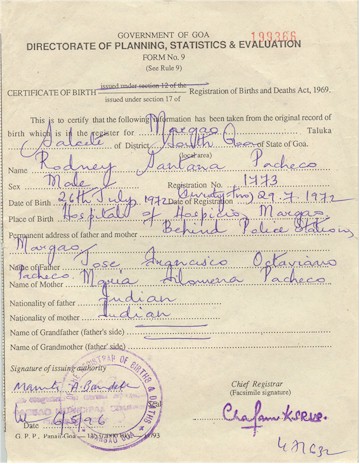 GOVERNMENT OF GOA 199366
DIRECTORATE OF PLANNING, STATISTICS & EVALUATION
FORM No. 9
(See Rule 9)
CERTIFICATE OF BIRTH issued under section 12 of the Registration of Births and Deaths Act, 1969.
issued under section 17 of
This is to certify that the following information has been taken from the original record of
birth which is in the register for Margao Taluka
Salcete of District South Goa of State of Goa.
(local area)
Rodney Santana Pacheco
Sex Male Registration No. 1773
Date of Birth 26th July, 1972 Date of Registration 29.7.1972
Place of Birth Hospital of Hospicio, Margao
Permanent address of father and mother Behind Police Station,
Margao
Name of Father Jose Francisco Octaviano
Pacheco
Name of Mother Maria Filomena Pacheco
Nationality of father Indian
Nationality of mother Indian
Name of Grandfather (father's side)
Name of Grandmother (father side)
Signature of issuing authority
REGISTRAR OF BIRTHS & DEATHS
Chief Registrar
(Facsimile signature)
Date 6/5/96
G. P. P., Panaji-Goa